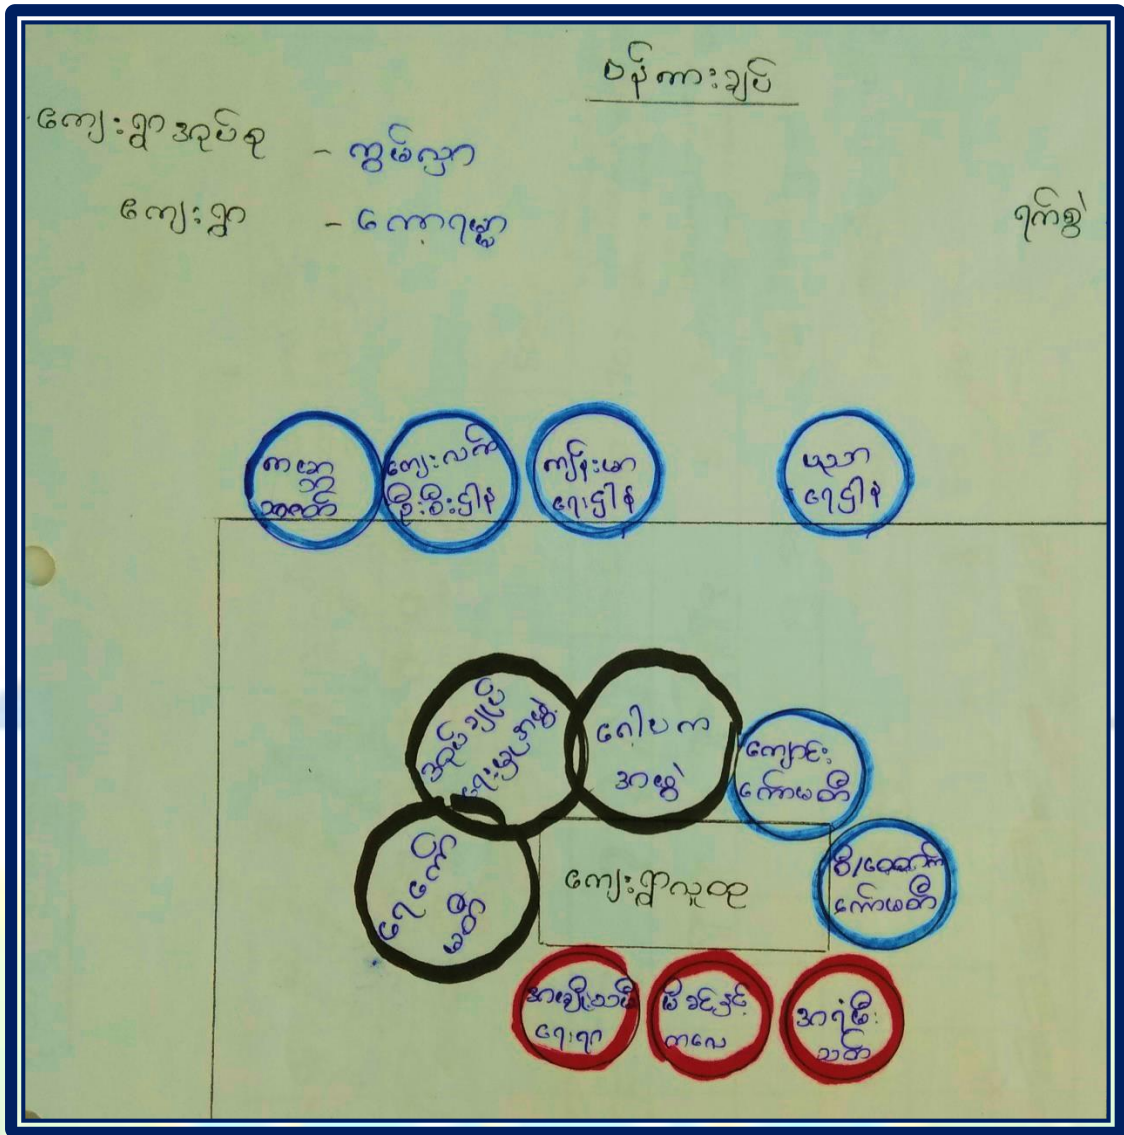 ဗန်ကားချပ်
ကျေးရွာအုပ်စု - ကွမ်လှာ
ကျေးရွာ -
ရက်စွဲ
ကျေးလက်
ဦးစီးဌာန
ကျန်းမာ
ရေးဌာန
ပညာ
ရေဌာန
အုပ်ချုပ်
ဂေါပက
အဖွဲ့
ကျောင်း
ကော်မတီ
ကော်မတီ
ရေကော်
မတီ
ကျေးရွာလူထု
အမျိုးသမီး
ရေးရာ
မိခင်နှင့်
ကလေး
အရံမီး
သတ်